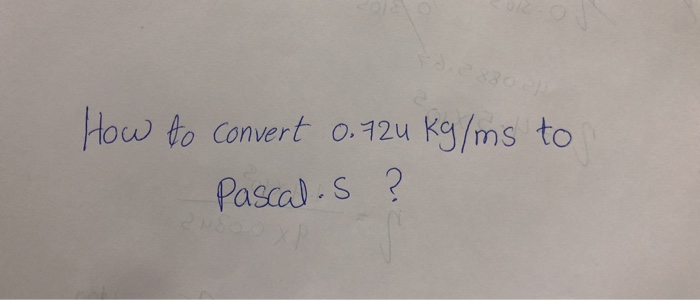 How to convert 0.724 kg/ms to
Pascal.S ?